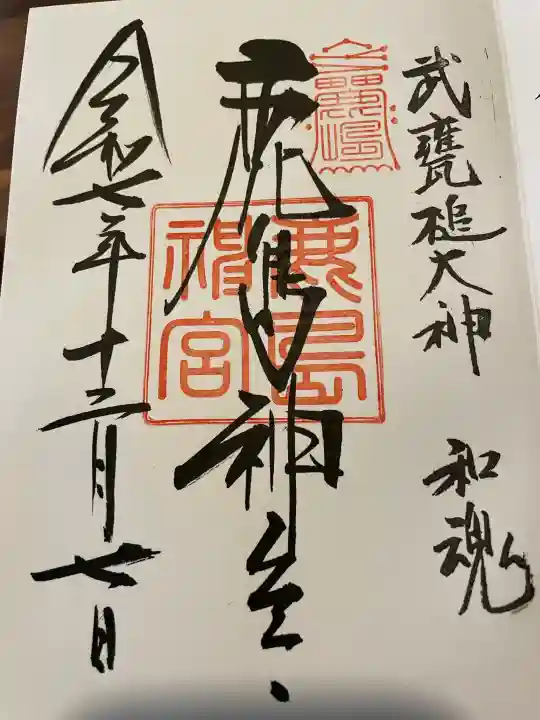 武甕槌大神
和魂
鹿島神宮
鹿島神宮
令和七年十二月七日